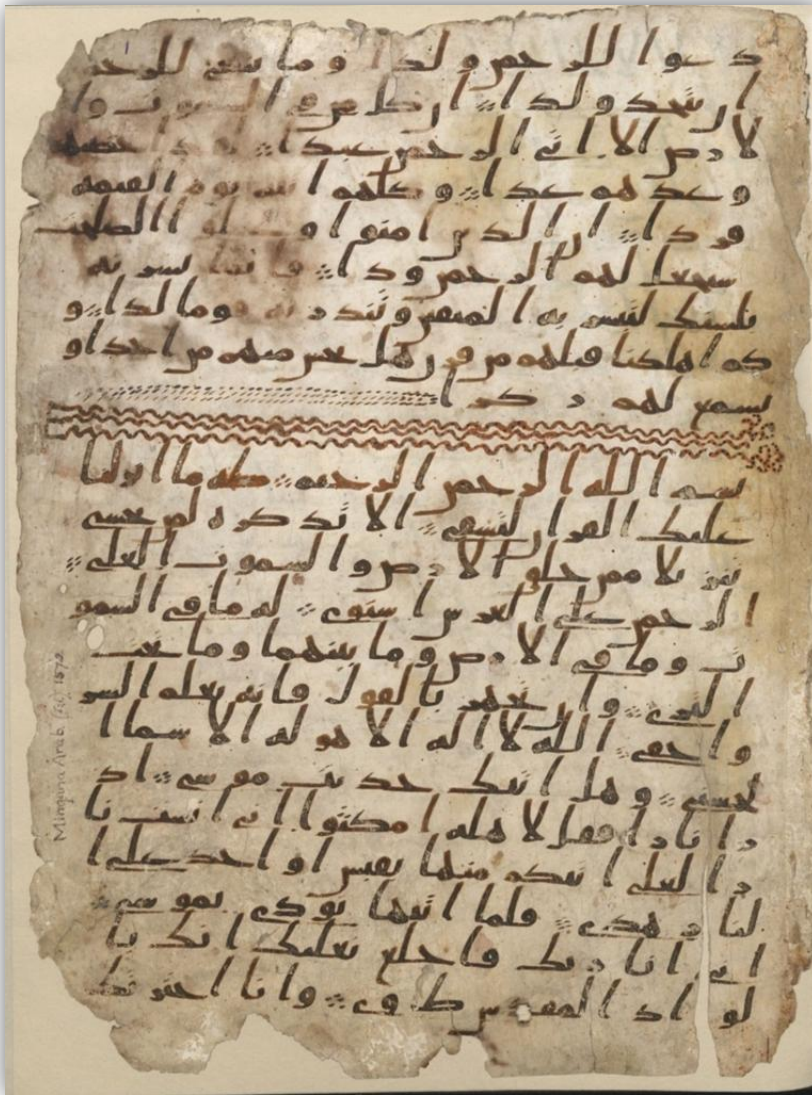 دعوا للرحمن ولدا وما ينبغي للرحمن
ان يتخذ ولدا ان كل من في السموت وا
لارض الا اتي الرحمن عبدا لقد احصيهم
وعدهم عدا وكلهم اتيه يوم القيمة
فردا ان الذين امنوا وعملوا الصلحت
سيجعل لهم الرحمن ودا فانما يسرنه
بلسنك لتبشر به المتقين وتنذر به قوما لدا و
كم اهلكنا قبلهم من قرن هل تحس منهم من احد او
تسمع لهم ركزا
بسم الله الرحمن الرحيم طه ما انزلنا
عليك القران لتشقى الا تذكرة لمن يخشى
تنزيلا ممن خلق الارض والسموت العلى
الرحمن على العرش استوى له ما في السمو
ت وما في الارض وما بينهما وما تحت
الثرى وان تجهر بالقول فانه يعلم السر
واخفى الله لا اله الا هو له الاسما ا
لحسنى وهل اتيك حديث موسى اذ
را نارا فقل لاهله امكثوا اني انست نا
را لعلي اتيكم منها بقبس او اجد على ا
لنار هدى فلما اتيها نودي يموسى
اني انا ربك فاخلع نعليك انك با
لواد المقدس طوى وانا اخترتك
Mingana Arab (Isl) 1572